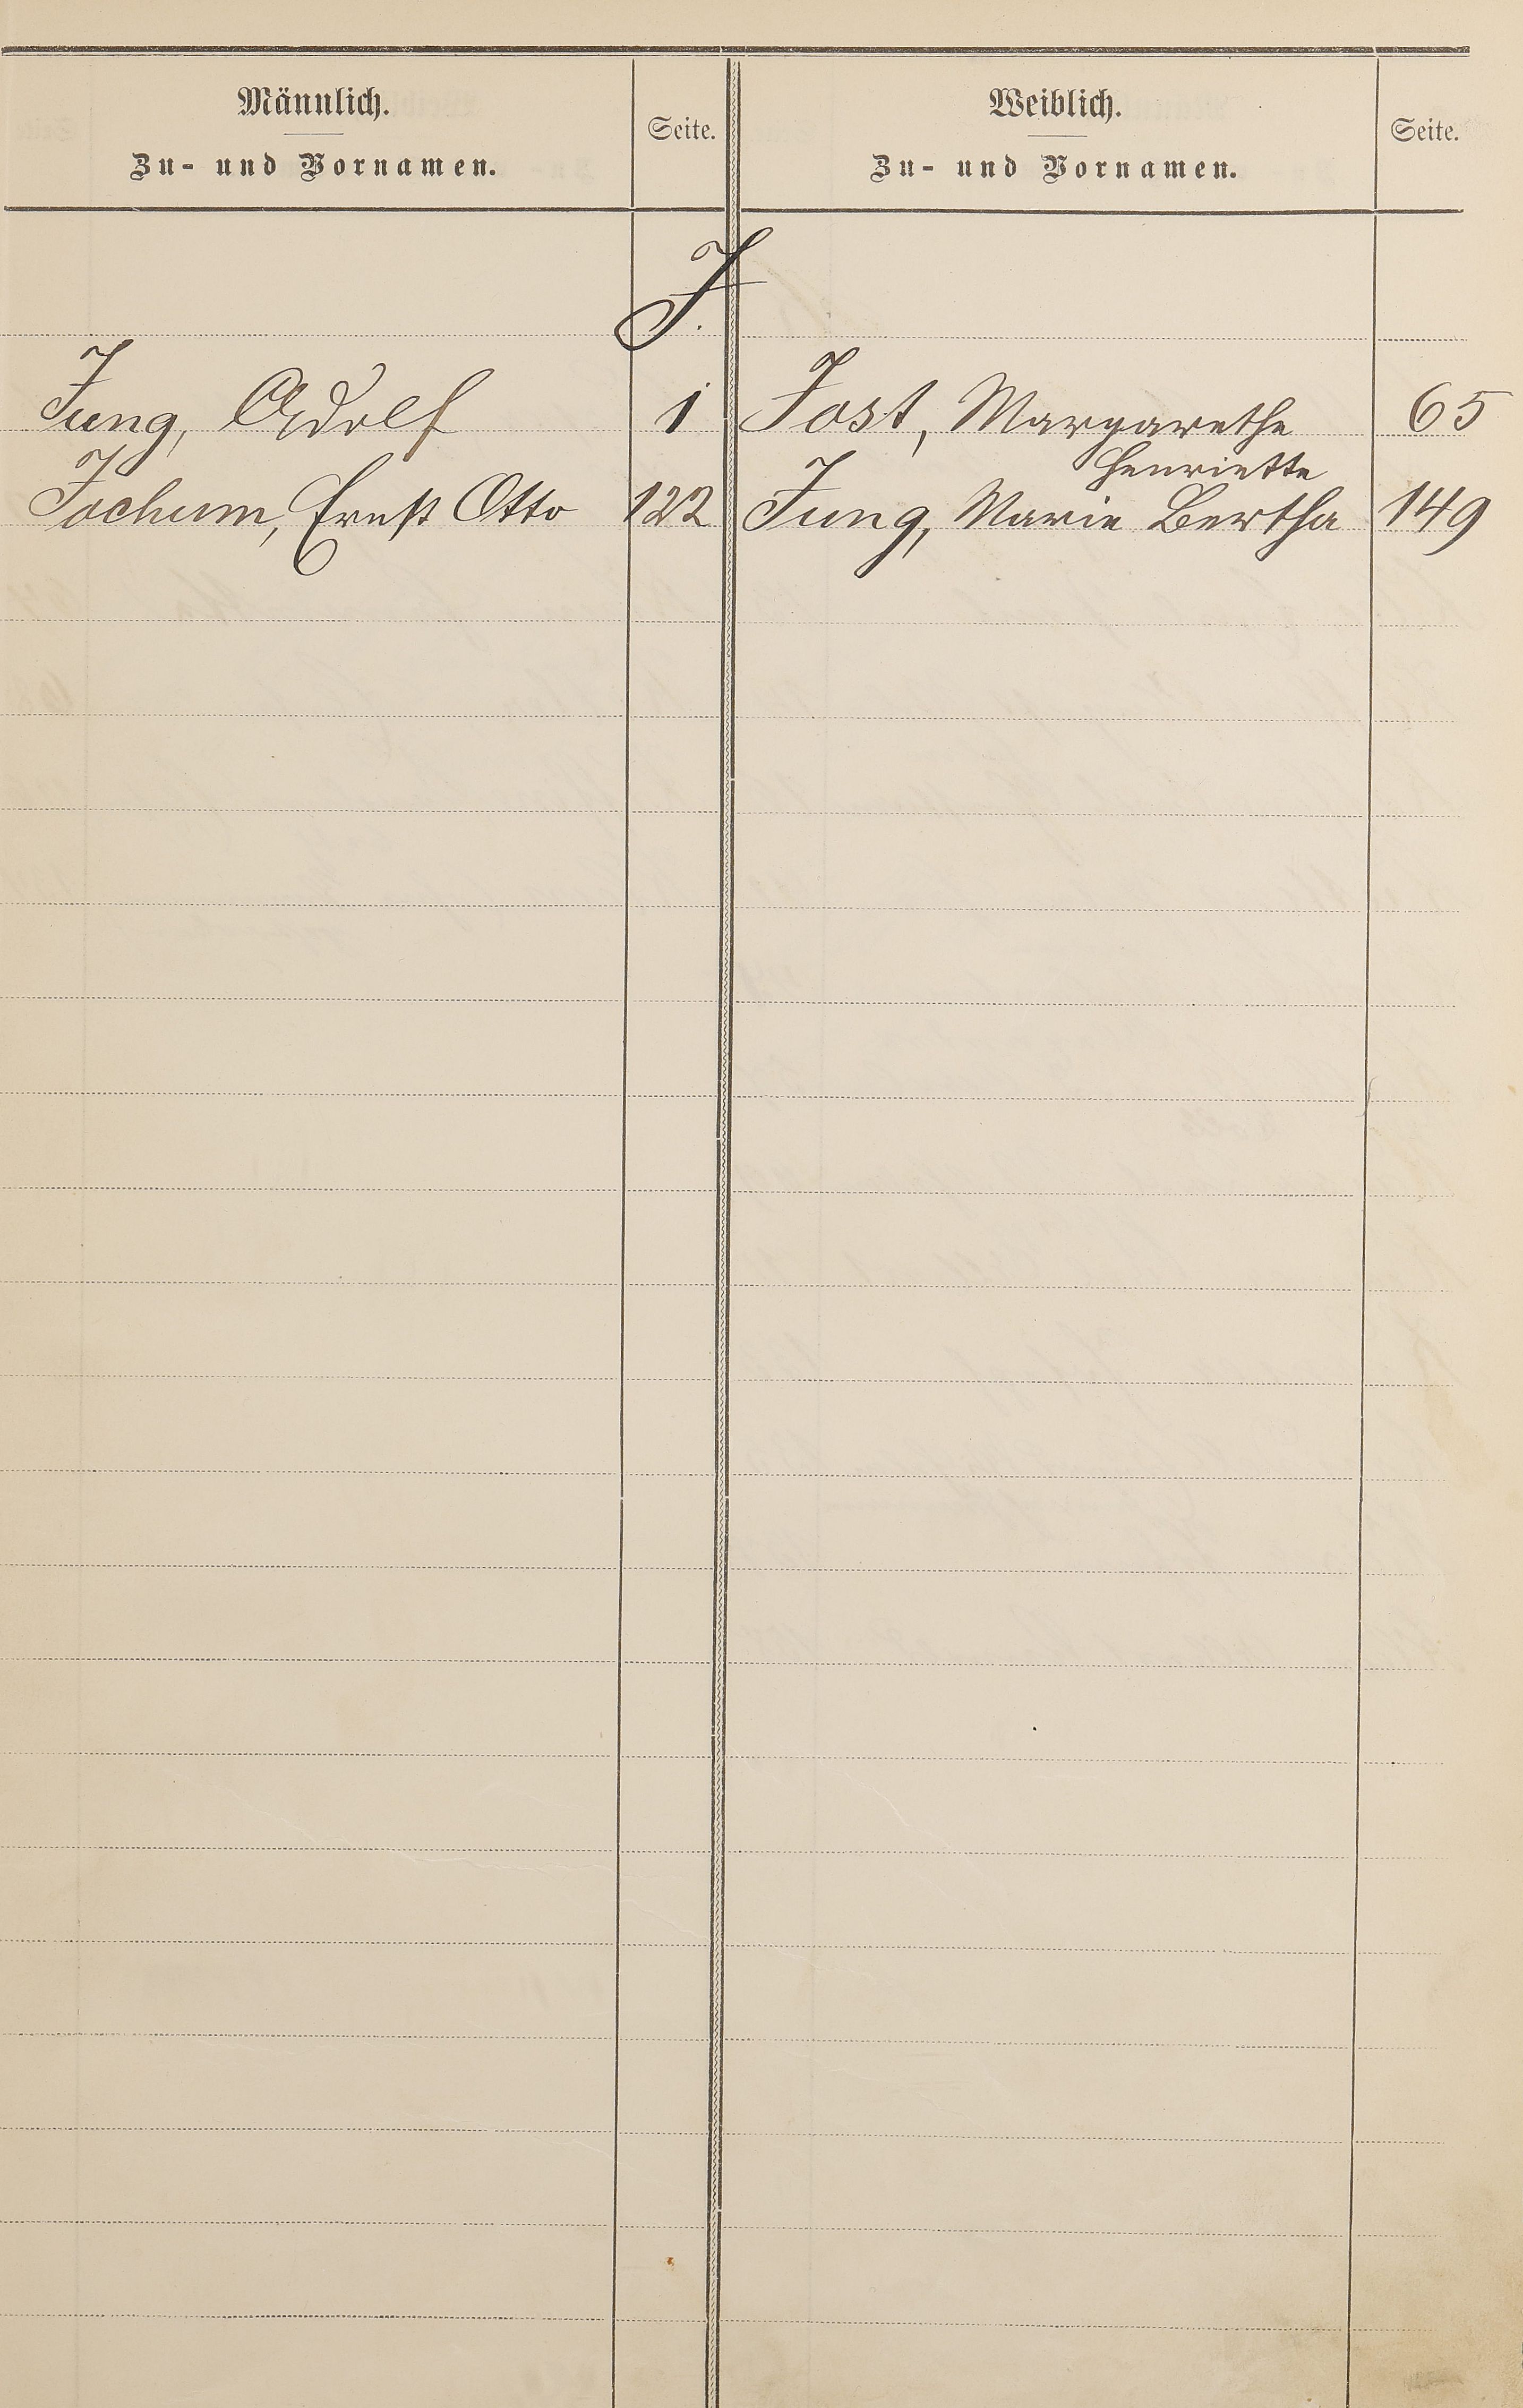 Männlich.
Zu- und Vornamen.
Seite.
Weiblich.
Zu- und Vornamen.
Seite.
J.
Jung, Adolf 1
Jost, Margarethe 65
Jochum, Ernst Otto 122
Henriette
Jung, Marie Bertha 149